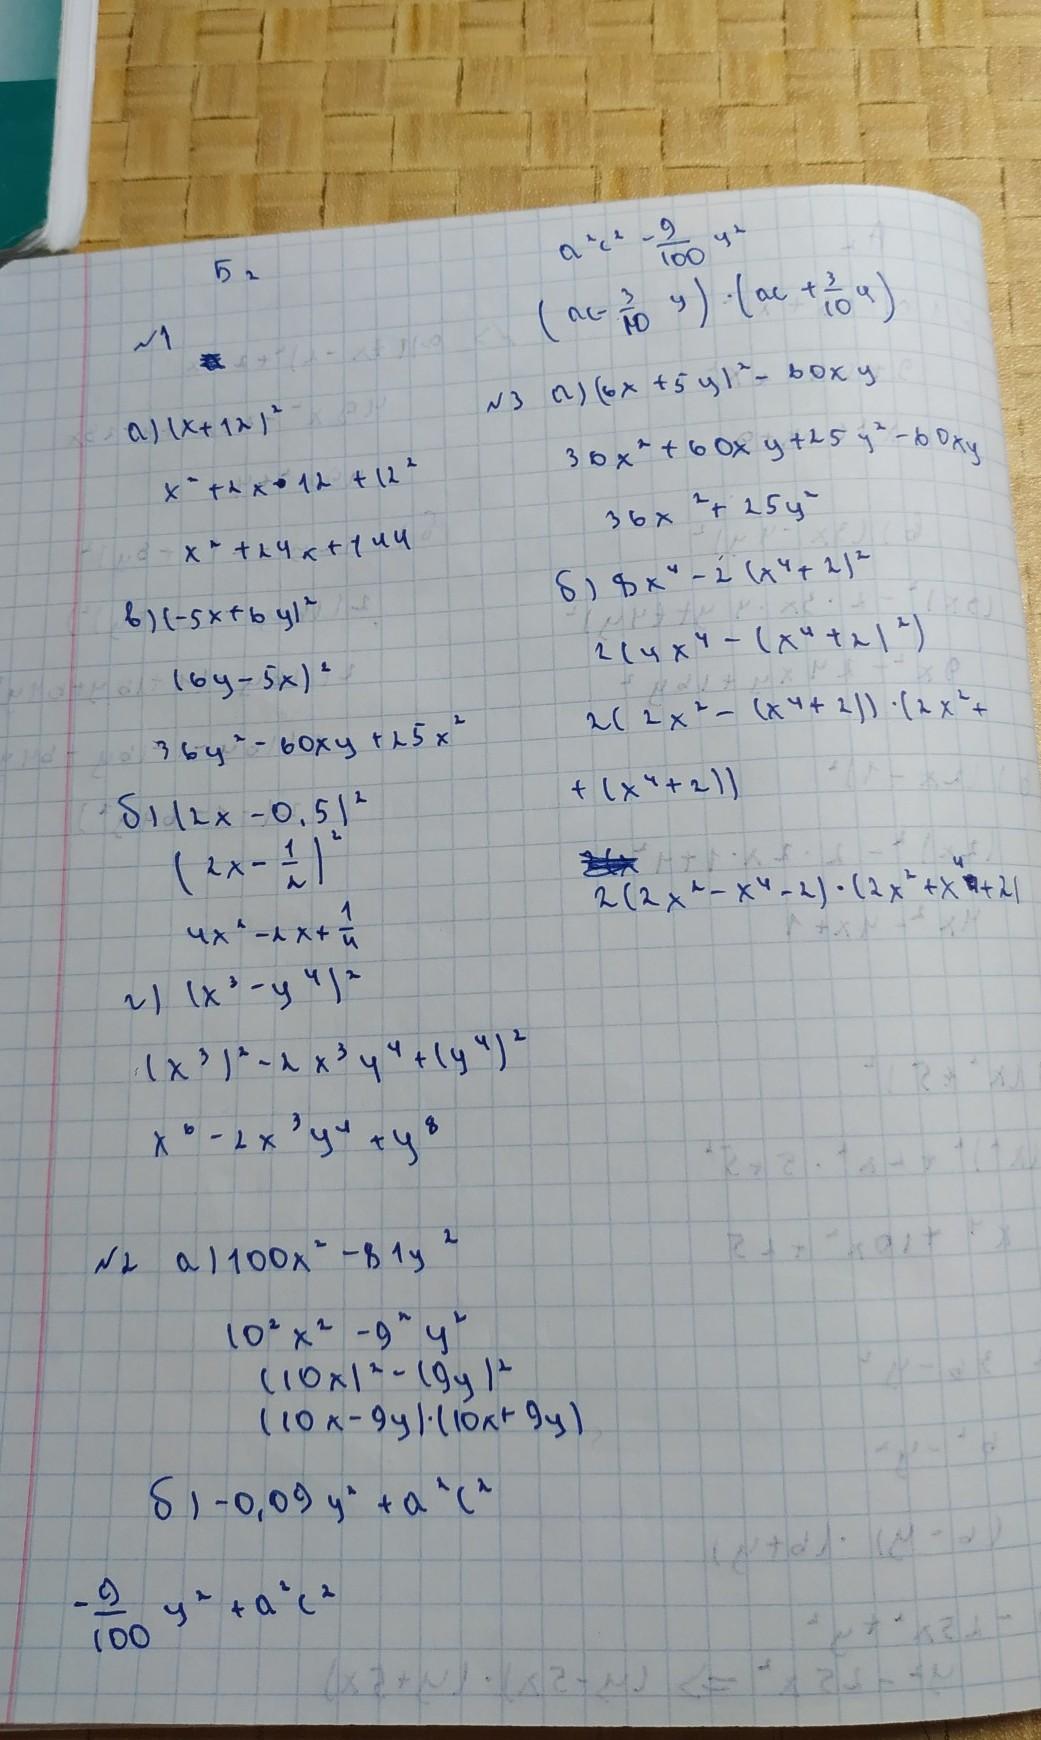 Б 2
№1
а) (x+12)²
x² + 2x·12 + 12²
x² + 24x + 144
в) (-5x + 6y)²
(6y - 5x)²
36y² - 60xy + 25x²
б) (2x - 0,5)²
(2x - 1/2)²
4x² - 2x + 1/4
г) (x³ - y⁴)²
(x³)² - 2x³y⁴ + (y⁴)²
x⁶ - 2x³y⁴ + y⁸
№2 а) 100x² - 81y²
10²x² - 9²y²
(10x)² - (9y)²
(10x - 9y)·(10x + 9y)
б) -0,09y² + a²c²
-9/100 y² + a²c²
a²c² - 9/100 y²
(ac - 3/10 y)·(ac + 3/10 y)
№3 а) (6x + 5y)² - 60xy
36x² + 60xy + 25y² - 60xy
36x² + 25y²
б) 8x⁴ - 2(x⁴ + 2)²
2(4x⁴ - (x⁴ + 2)²)
2(2x² - (x⁴ + 2))·(2x² +
+ (x⁴ + 2))
2(2x² - x⁴ - 2)·(2x² + x⁴ + 2)